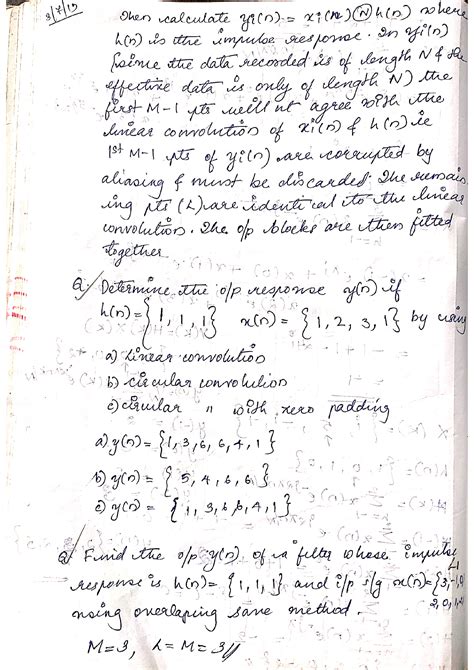 3/7/15
Then calculate yi(n) = xi(n) Ⓝ h(n) where
h(n) is the impulse response. In yi(n)
(since the data recorded is of length N & the
effective data is only of length N) the
first M-1 pts will nt agree with the
linear convolution of xi(n) & h(n) ie
1st M-1 pts of yi(n) are corrupted by
aliasing & must be discarded. The remain
ing pts (L) are identical to the linear
convolution. The o/p blocks are then fitted
together
Q/ Determine the o/p response y(n) if
h(n) = {1, 1, 1} x(n) = {1, 2, 3, 1} by using
a) Linear convolution
b) circular convolution
c) circular " with zero padding
a) y(n) = {1, 3, 6, 6, 4, 1}
b) y(n) = {5, 4, 6, 6}
c) y(n) = {1, 3, 6, 6, 4, 1}
Q/ Find the o/p y(n) of a filter whose impulse
response is h(n) = {1, 1, 1} and i/p s/g x(n) = {3, -1, 0
using overlaping save method. 2, 0, 1,
M = 3, L = M = 3//